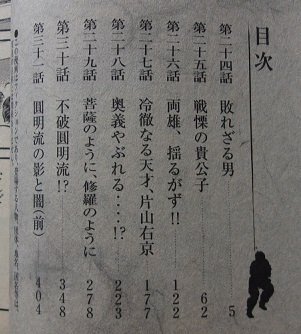 目次
第二十四話 敗れざる男 5
第二十五話 戦慄の貴公子 62
第二十六話 両雄、揺るがず!! 122
第二十七話 冷徹なる天才、片山右京 177
第二十八話 奥義やぶれる‥‥!? 223
第二十九話 菩薩のように、修羅のように 278
第三十話 不破圓明流!? 348
第三十一話 圓明流の影と闇(前) 404